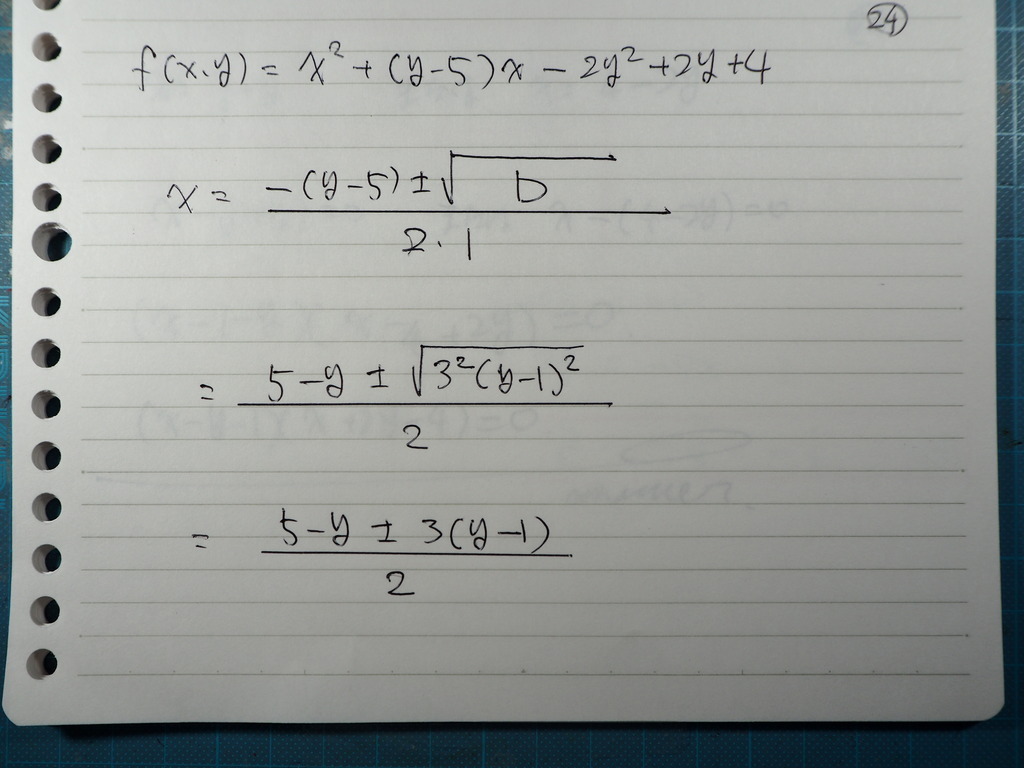 24
f(x.y) = x² + (y-5)x - 2y² + 2y + 4
x = -(y-5) ± √D / 2·1
= 5-y ± √3²(y-1)² / 2
= 5-y ± 3(y-1) / 2